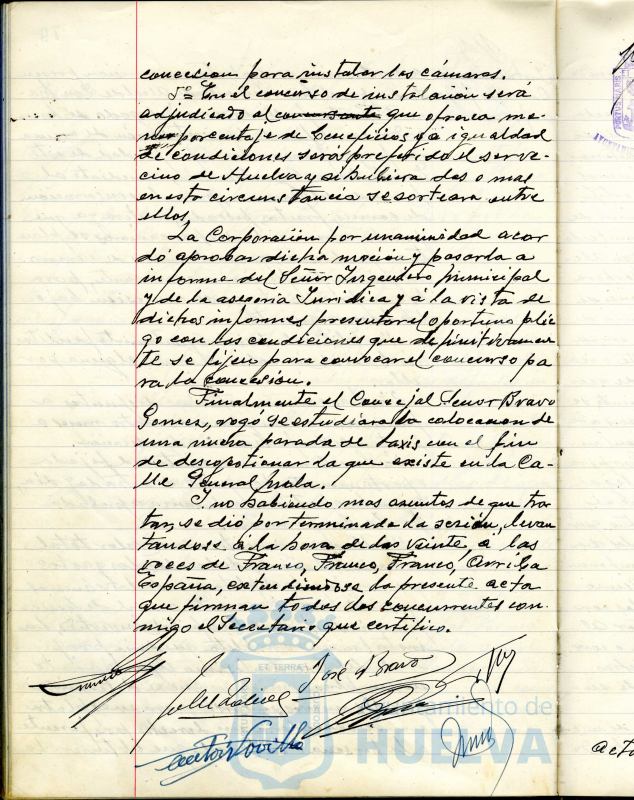 concesion para instalar las cámaras.
5ª En el concurso de instalación será
adjudicado al concursante que ofrezca me-
nor porcentaje de beneficios y á igualdad
de condiciones será preferido el serve-
cino de Huelva y si hubiera dos o mas
en esta circunstancia se sorteara entre
ellos.
La Corporación por unanimidad acor
dó aprobar dicha moción y pasarla a
informe del Señor Ingeniero Municipal
y de la asesoria Juridica y á la vista de
dichos informes presentar el oportuno plie
go con las condiciones que definitivamen
te se fijen para convocar el concurso pa
ra la concesion.
Finalmente el Concejal Señor Bravo
Gomez, rogó se estudiara la colocacion de
una nueva parada de taxis con el fin
de descogestionar la que existe en la Ca-
lle General Mola.
Y no habiendo mas asuntos de que tra
tar, se dió por terminada la sesión, levan
tandose á la hora de las veinte, á las
voces de Franco, Franco, Franco, Arriba
España, extendiendose la presente acta
que firman todos los concurrentes con-
migo el Secretario que certifico.
José Bravo
ET TERRAE
Ayuntamiento de
HUELVA
acta